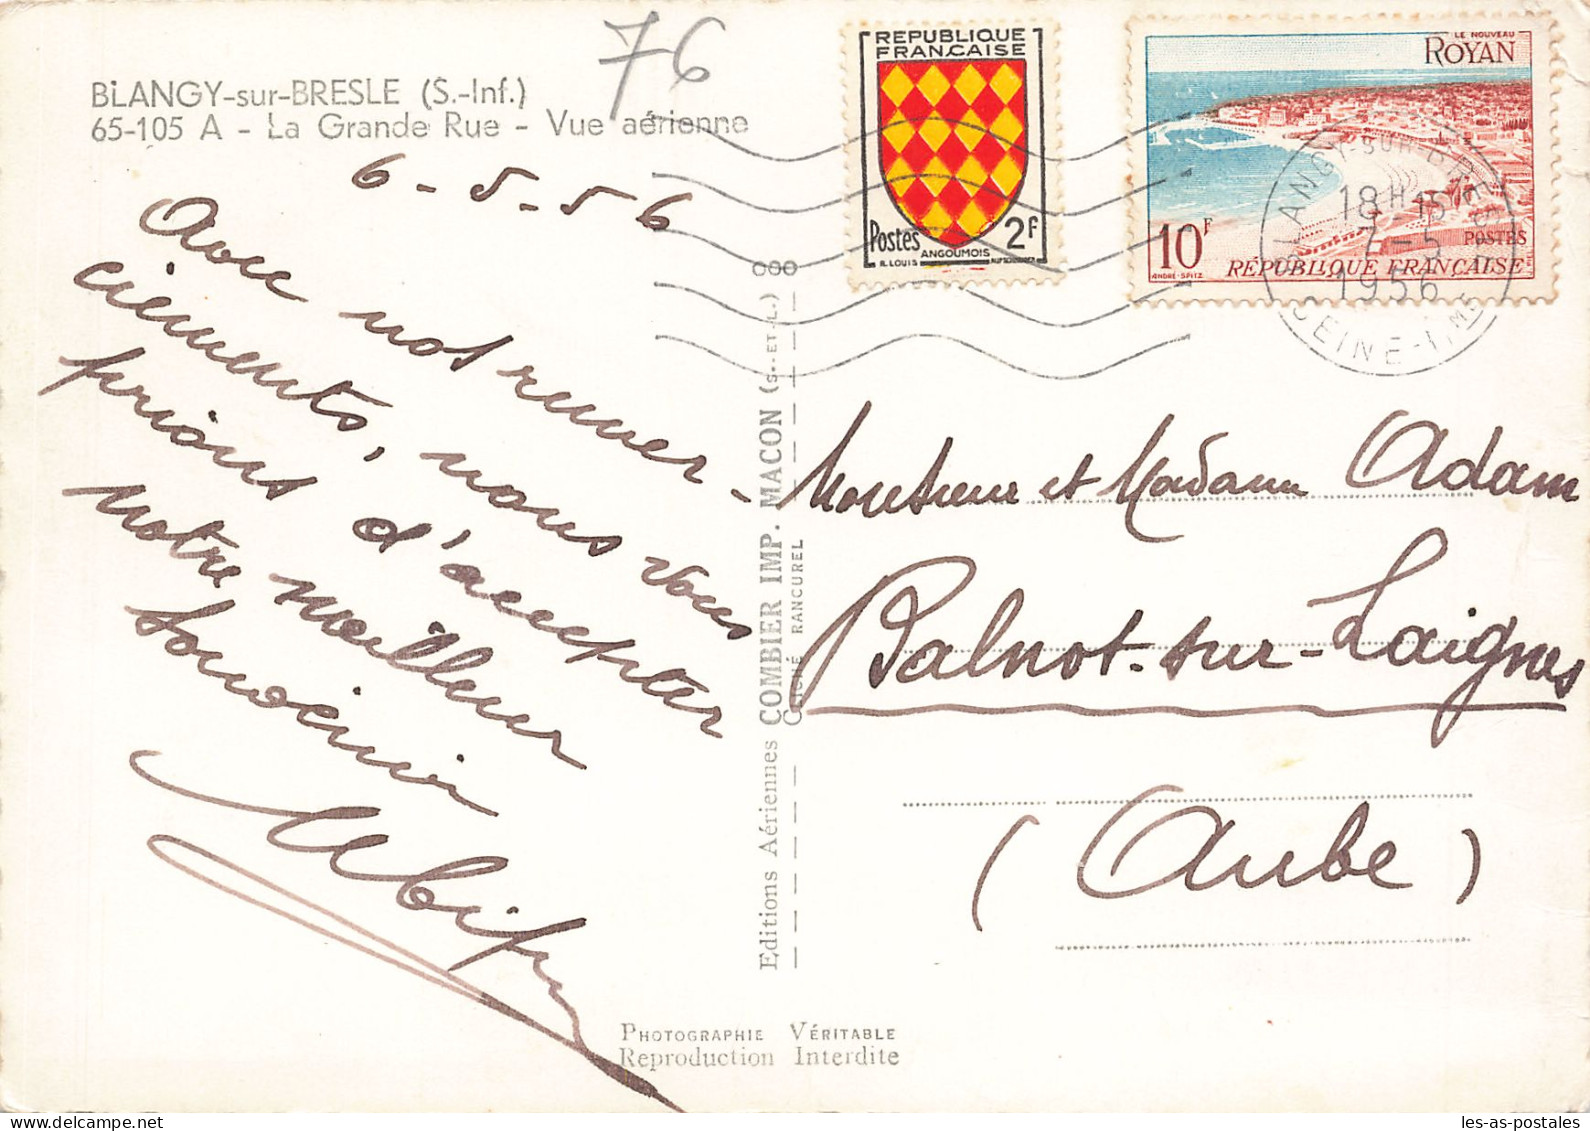 76
BLANGY-sur-BRESLE (S.-Inf.)
65-105 A - La Grande Rue - Vue aérienne
6-5.56
Avec nos remer-
ciements, nous vous
prions d'accepter
notre meilleur
souvenir
REPUBLIQUE
FRANÇAISE
Postes 2F
ANGOUMOIS
R. LOUIS
LE NOUVEAU
ROYAN
10F
POSTES
ANDRÉ-SPITZ
RÉPUBLIQUE FRANÇAISE
BLANGY-SUR-BRESLE
18H15
7-5
1956
SEINE-IME
Editions Aériennes COMBIER IMP. MACON (S.-ET-L.)
CLICHÉ RANCUREL
Monsieur et Madame Adam
Balnot-sur-Laignes
(Aube)
PHOTOGRAPHIE VÉRITABLE
Reproduction Interdite
les-as-postales